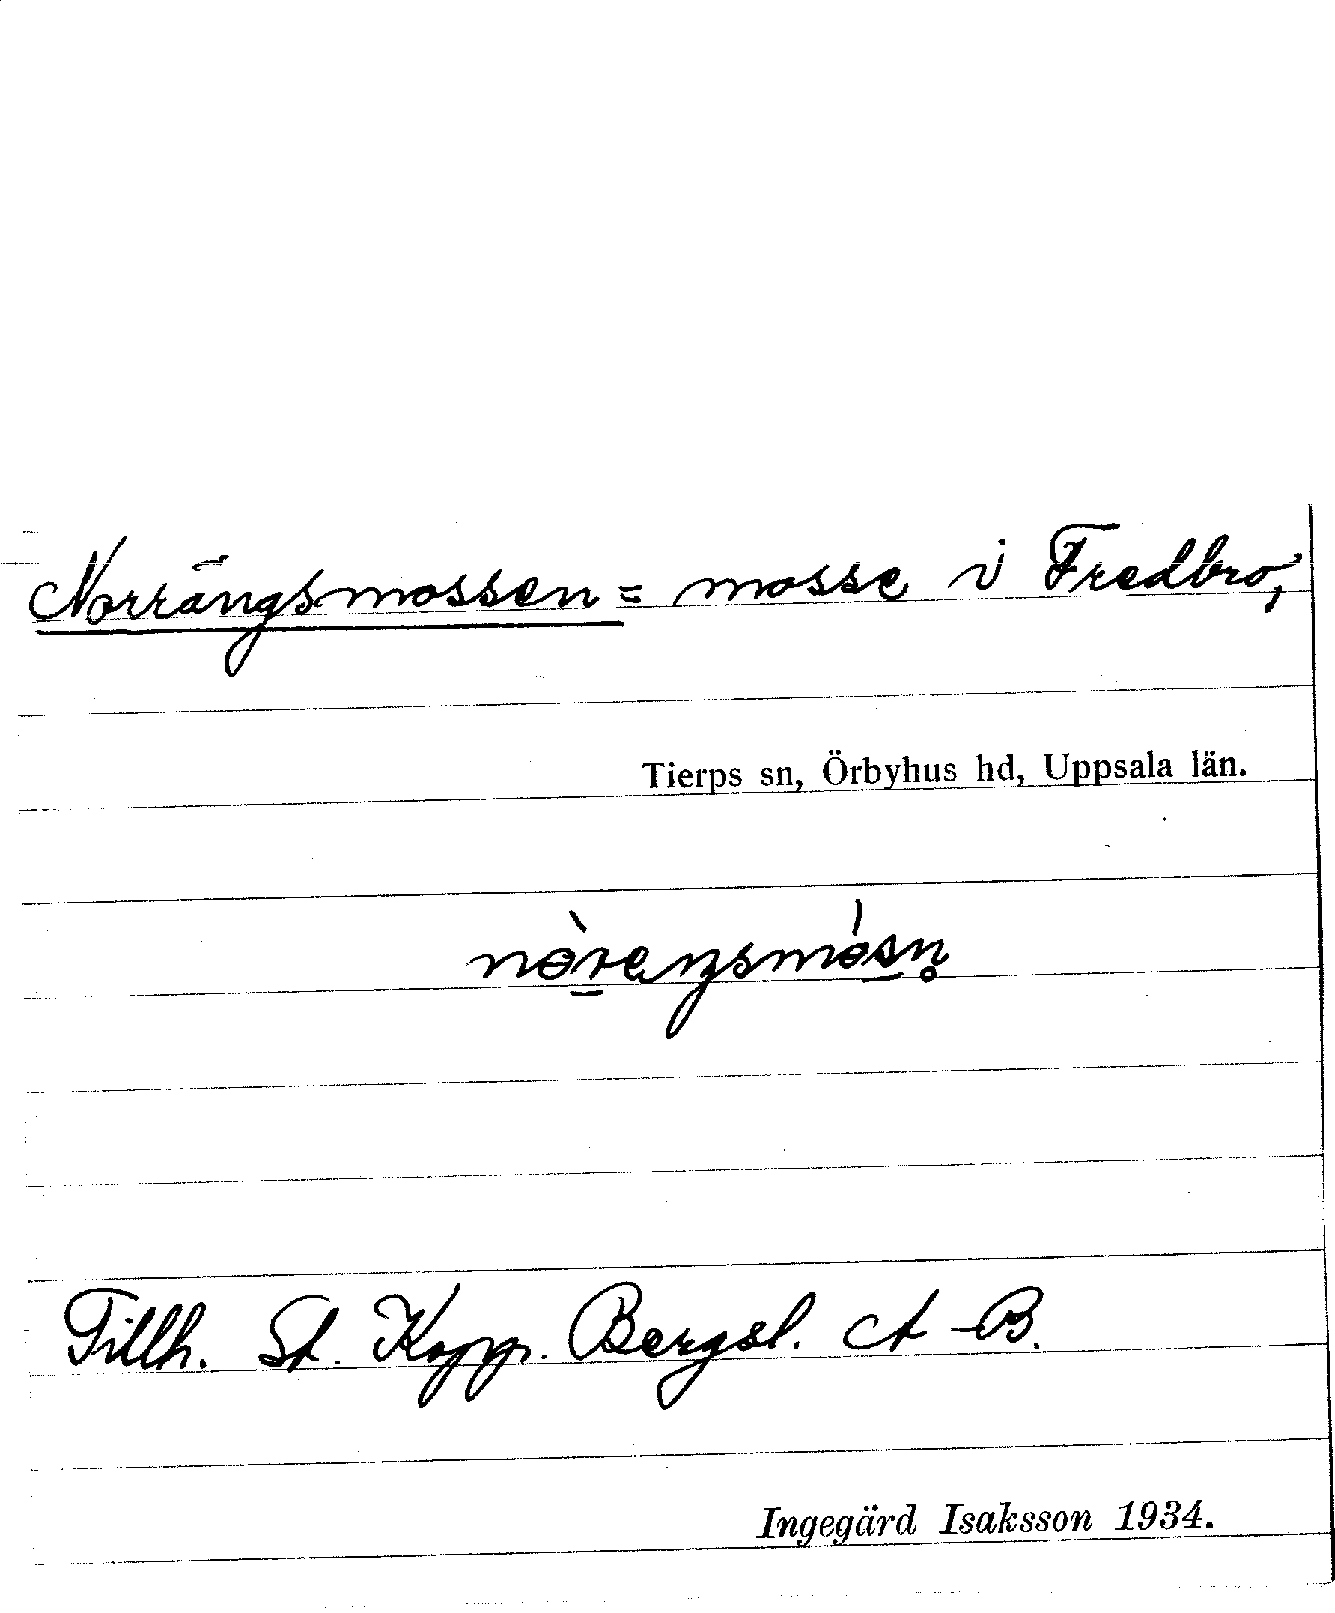 Norrängsmossen = mosse i Fredbro,
Tierps sn, Örbyhus hd, Uppsala län.
nɵ̀r̲eŋsmɵ́s̲n̥
Tillh. St. Kopp. Bergsl. A-B.
Ingegärd Isaksson 1934.